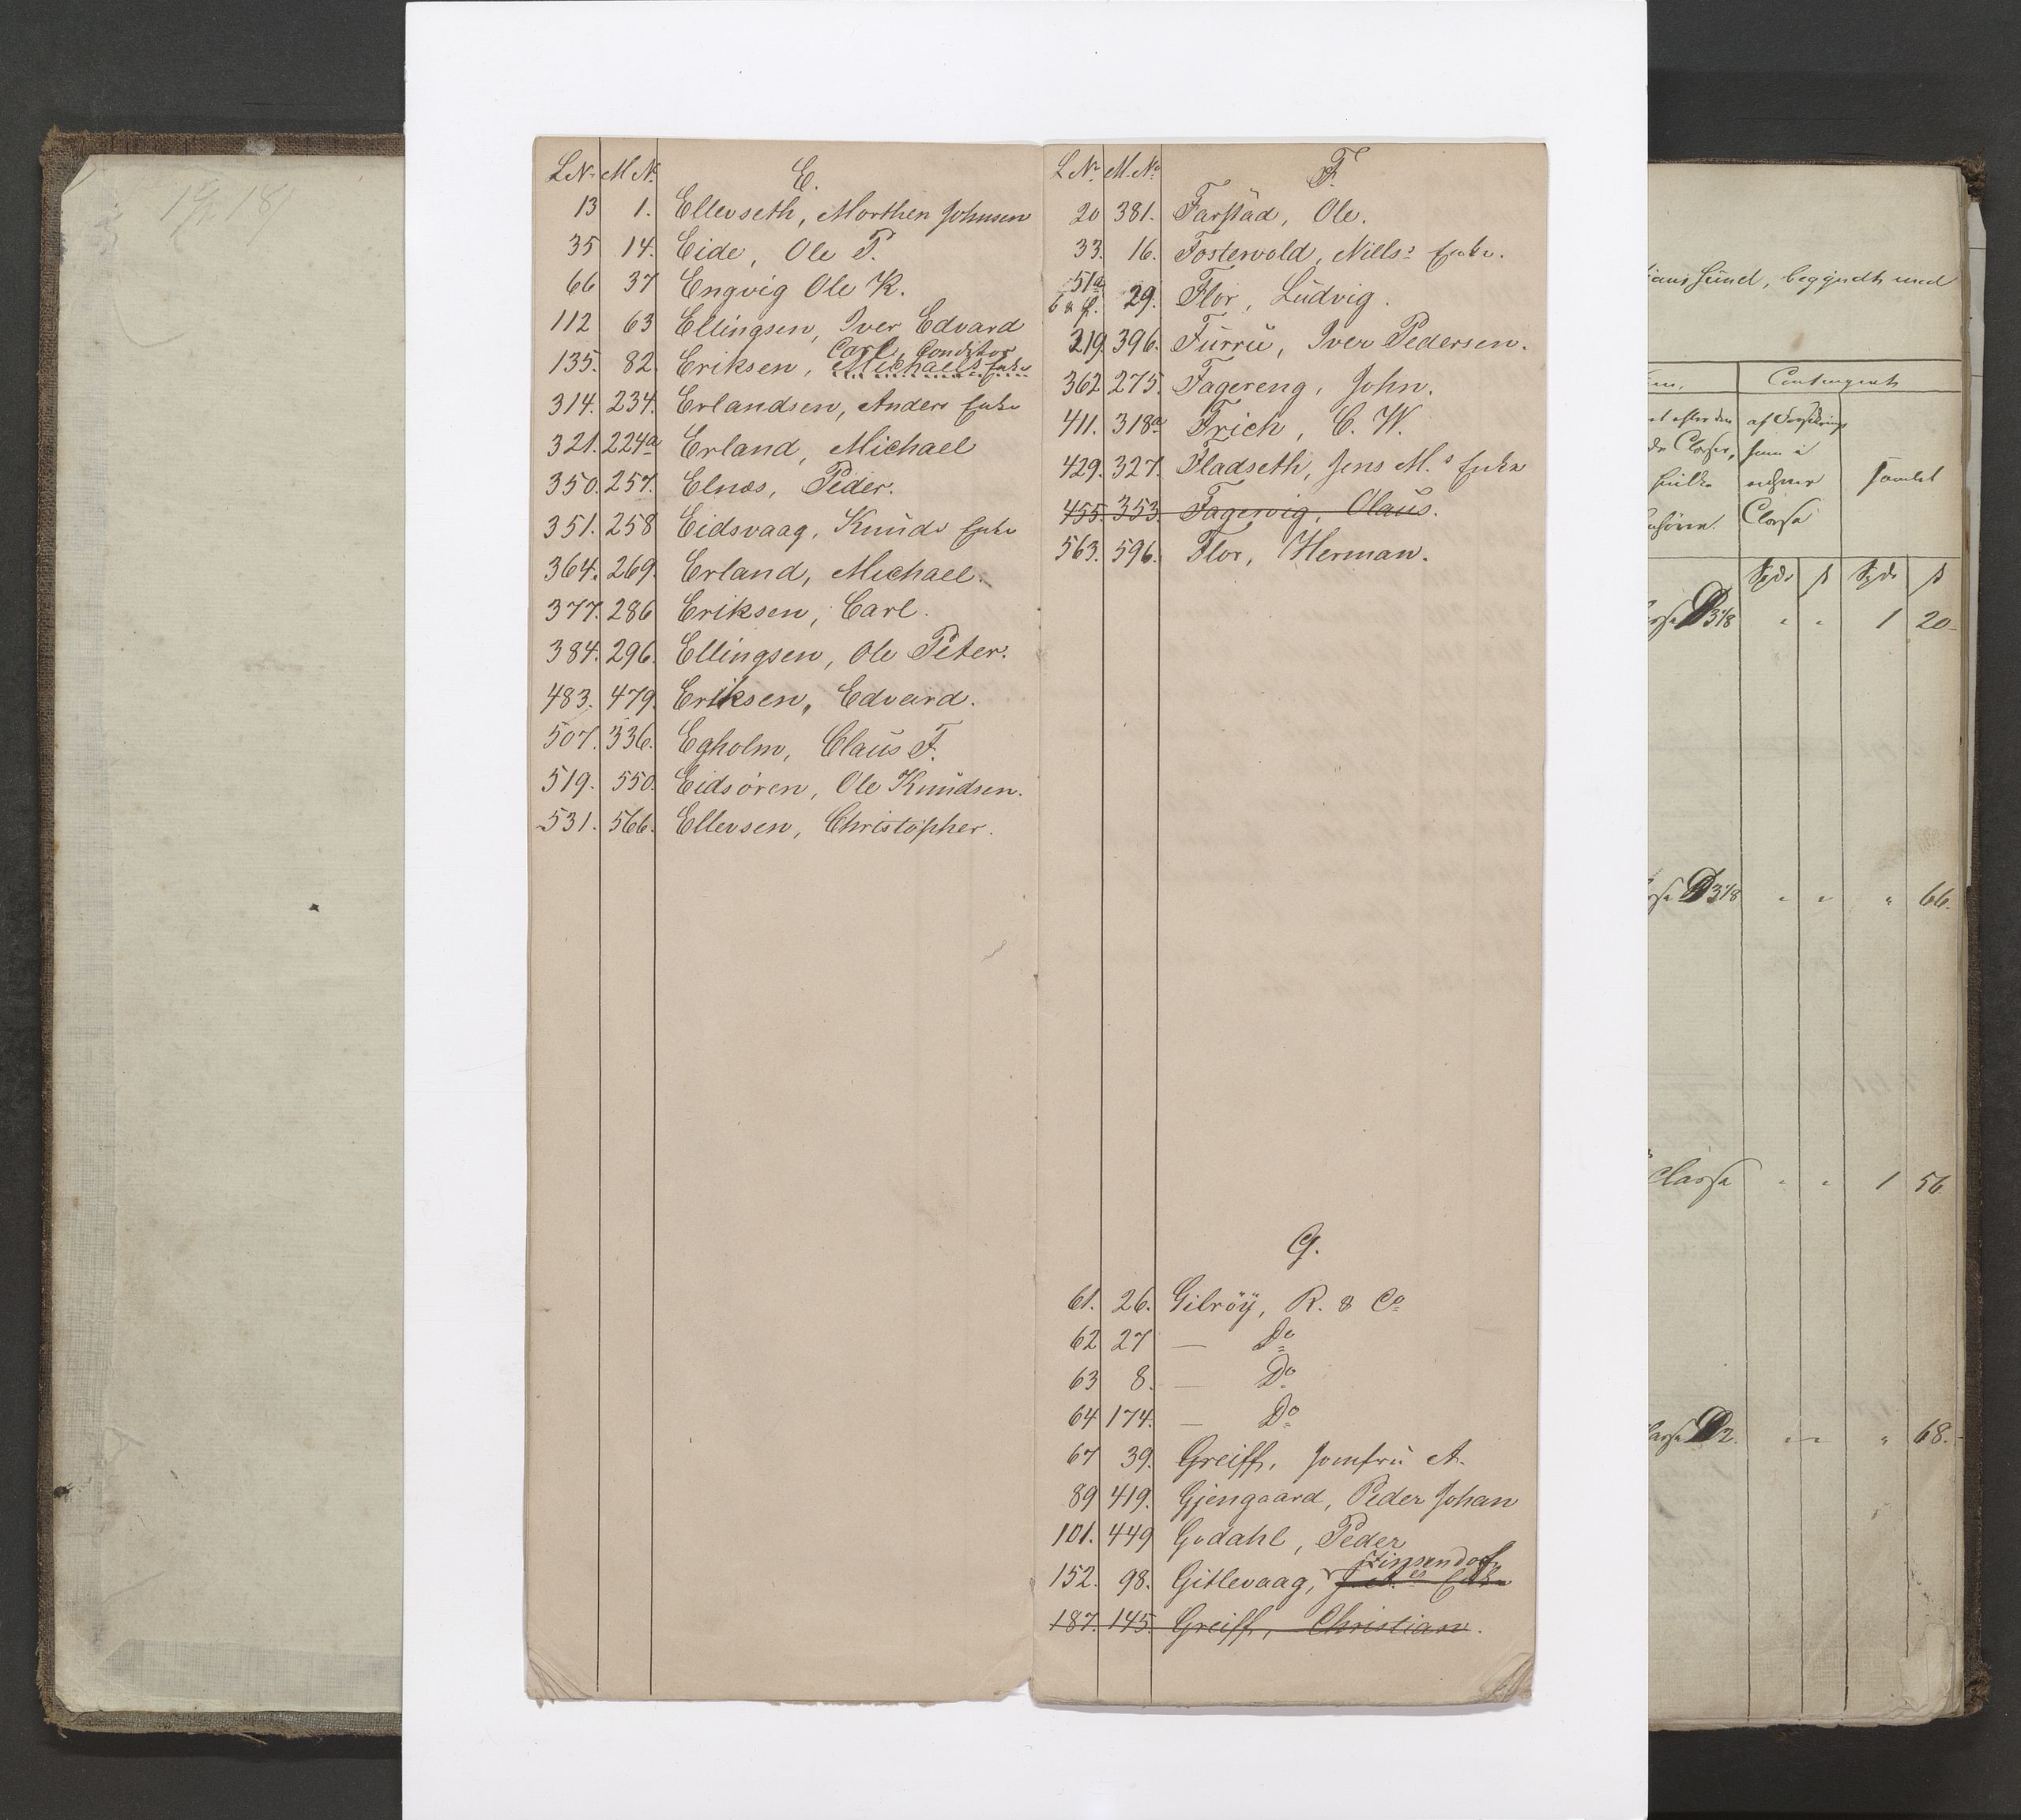 L Nr. M No. E.
13 1. Ellevseth, Morthen Johnsen
35 14. Eide, Ole P.
66 37 Engvig Ole K.
112 63 Ellingsen, Iver Edvard
Carl, Conditor
135. 82. Eriksen, Michaels Enke
314. 234. Erlandsen, Anders Enke
321. 224a Erland, Michael
350. 257. Elnæs, Peder.
351. 258 Eidsvaag, Knuds Enke
364. 269. Erland, Michael.
377. 286 Eriksen, Carl.
384. 296. Ellingsen, Ole Peter.
483. 479. Eriksen, Edvard.
507. 336. Egholm, Claus F.
519. 550. Eidsören, Ole Knudsen.
531. 566. Ellevsen, Christopher.
L Nr. M. No. F.
20 381. Farstad, Ole.
33. 16. Fostervold, Nills: Enke.
51a
6 a f. 29. Flor, Ludvig.
219. 396. Furru, Iver Pedersen.
362. 275. Fagereng, John.
411. 318a Frich, C. W.
429. 327. Fladseth, Jens M.s Enke
455. 353. Fagervig, Olaus.
563. 596. Flor, Herman.
G.
61. 26. Gilröÿ, R. & Co
62 27 — Do
63 8. — Do
64 174. — Do
67 39. Greiff, Jomfru A.
89 419. Gjengaard, Peder Johan
101. 449 Godahl, Peder
Zinsendorf
152. 98. Gitlevaag, Enke
187. 145. Greiff, Christian.
ians Sund, begyndt med
Contingent
af Forsikring
som i
Classe
samlet
Spds ß Spds ß
D 3/8 " " 1 20
D 3/8 " " " 66.
Classe " " 1 56
D 2. " " " 68.